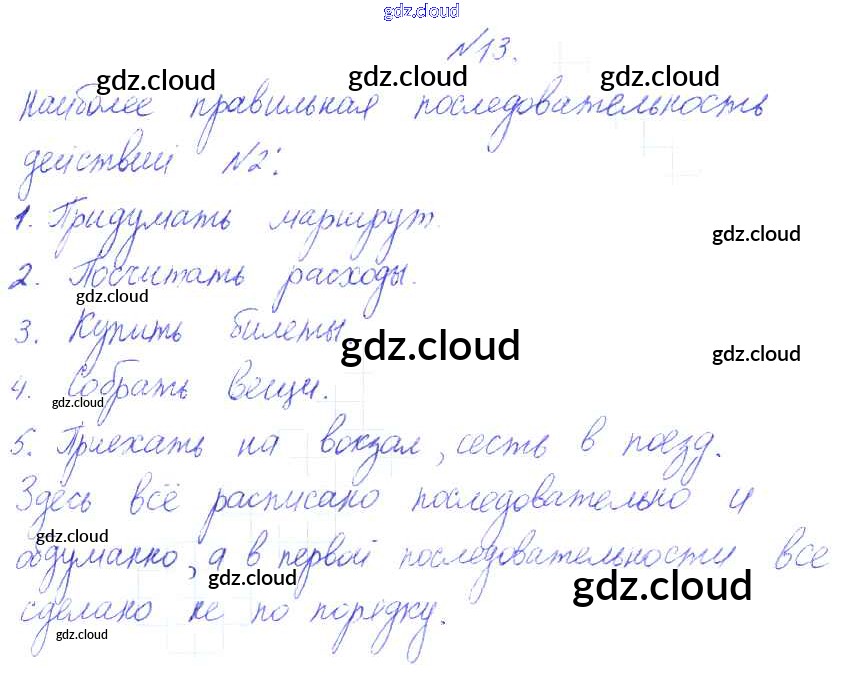 gdz.cloud
№13.
gdz.cloud gdz.cloud gdz.cloud
Наиболее правильная последовательность
действий №2:
1. Придумать маршрут.
gdz.cloud
2. Посчитать расходы.
gdz.cloud
3. Купить билеты
gdz.cloud gdz.cloud
4. Собрать вещи.
gdz.cloud
5. Приехать на вокзал, сесть в поезд.
Здесь всё расписано последовательно и
gdz.cloud
обдуманно, а в первой последовательности все
gdz.cloud gdz.cloud
сделано не по порядку.
gdz.cloud